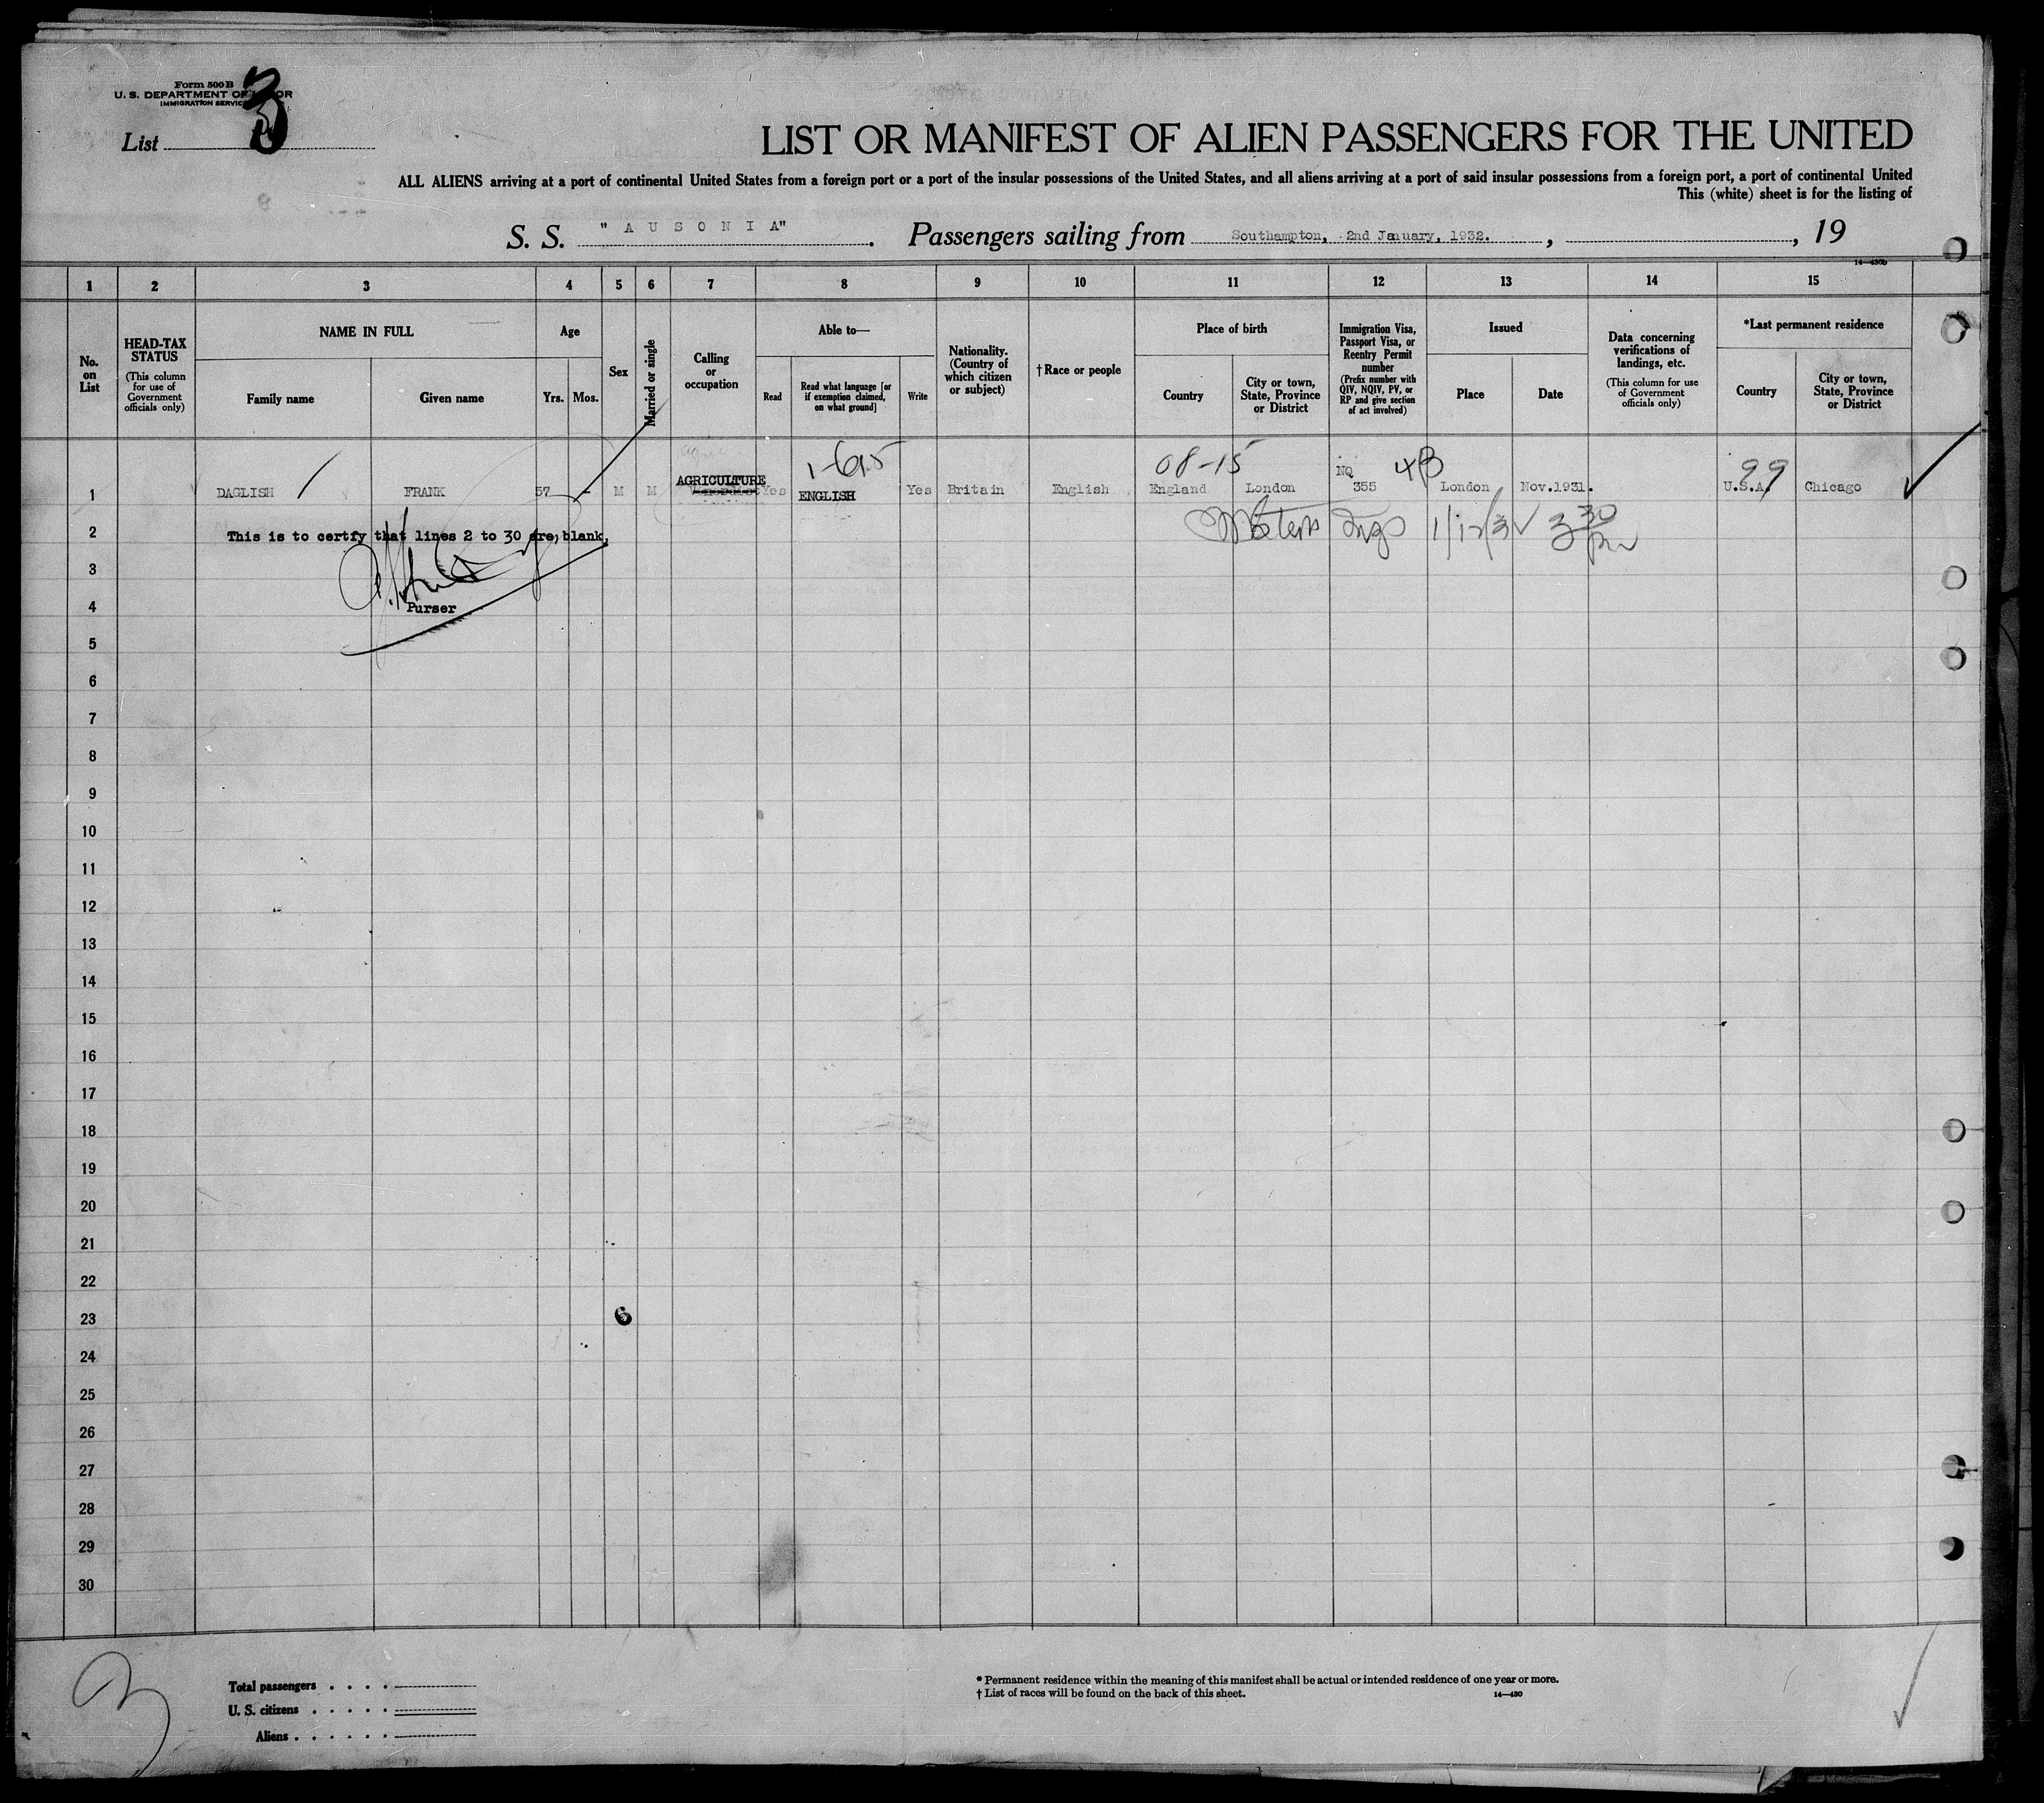 Form 500 B
U. S. DEPARTMENT OF LABOR
IMMIGRATION SERVICE
List 3
LIST OR MANIFEST OF ALIEN PASSENGERS FOR THE UNITED
ALL ALIENS arriving at a port of continental United States from a foreign port or a port of the insular possessions of the United States, and all aliens arriving at a port of said insular possessions from a foreign port, a port of continental United
This (white) sheet is for the listing of
S. S. "AUSONIA". Passengers sailing from Southampton, 2nd January, 1932. , , 19
14—430b
1 2 3 4 5 6 7 8 9 10 11 12 13 14 15
No. on List
HEAD-TAX STATUS
(This column for use of Government officials only)
NAME IN FULL
Family name
Given name
Age
Yrs. Mos.
Sex
Married or single
Calling or occupation
Able to—
Read
Read what language [or if exemption claimed, on what ground]
Write
Nationality. (Country of which citizen or subject)
†Race or people
Place of birth
Country
City or town, State, Province or District
Immigration Visa, Passport Visa, or Reentry Permit number
(Prefix number with QIV, NQIV, PV, or RP and give section of act involved)
Issued
Place
Date
Data concerning verifications of landings, etc.
(This column for use of Government officials only)
*Last permanent residence
Country
City or town, State, Province or District
08-15 NQ 4B 99
1 DAGLISH FRANK 57 - M M AGRICULTURE Yes ENGLISH Yes Britain English England London 355 London Nov.1931. U.S.A. Chicago
2 This is to certfy that lines 2 to 30 are blank, 3 30
3
4 Purser
5
6
7
8
9
10
11
12
13
14
15
16
17
18
19
20
21
22
23 6
24
25
26
27
28
29
30
3
Total passengers . . . .
U. S. citizens . . . . .
Aliens . . . . . .
* Permanent residence within the meaning of this manifest shall be actual or intended residence of one year or more.
† List of races will be found on the back of this sheet. 14—430